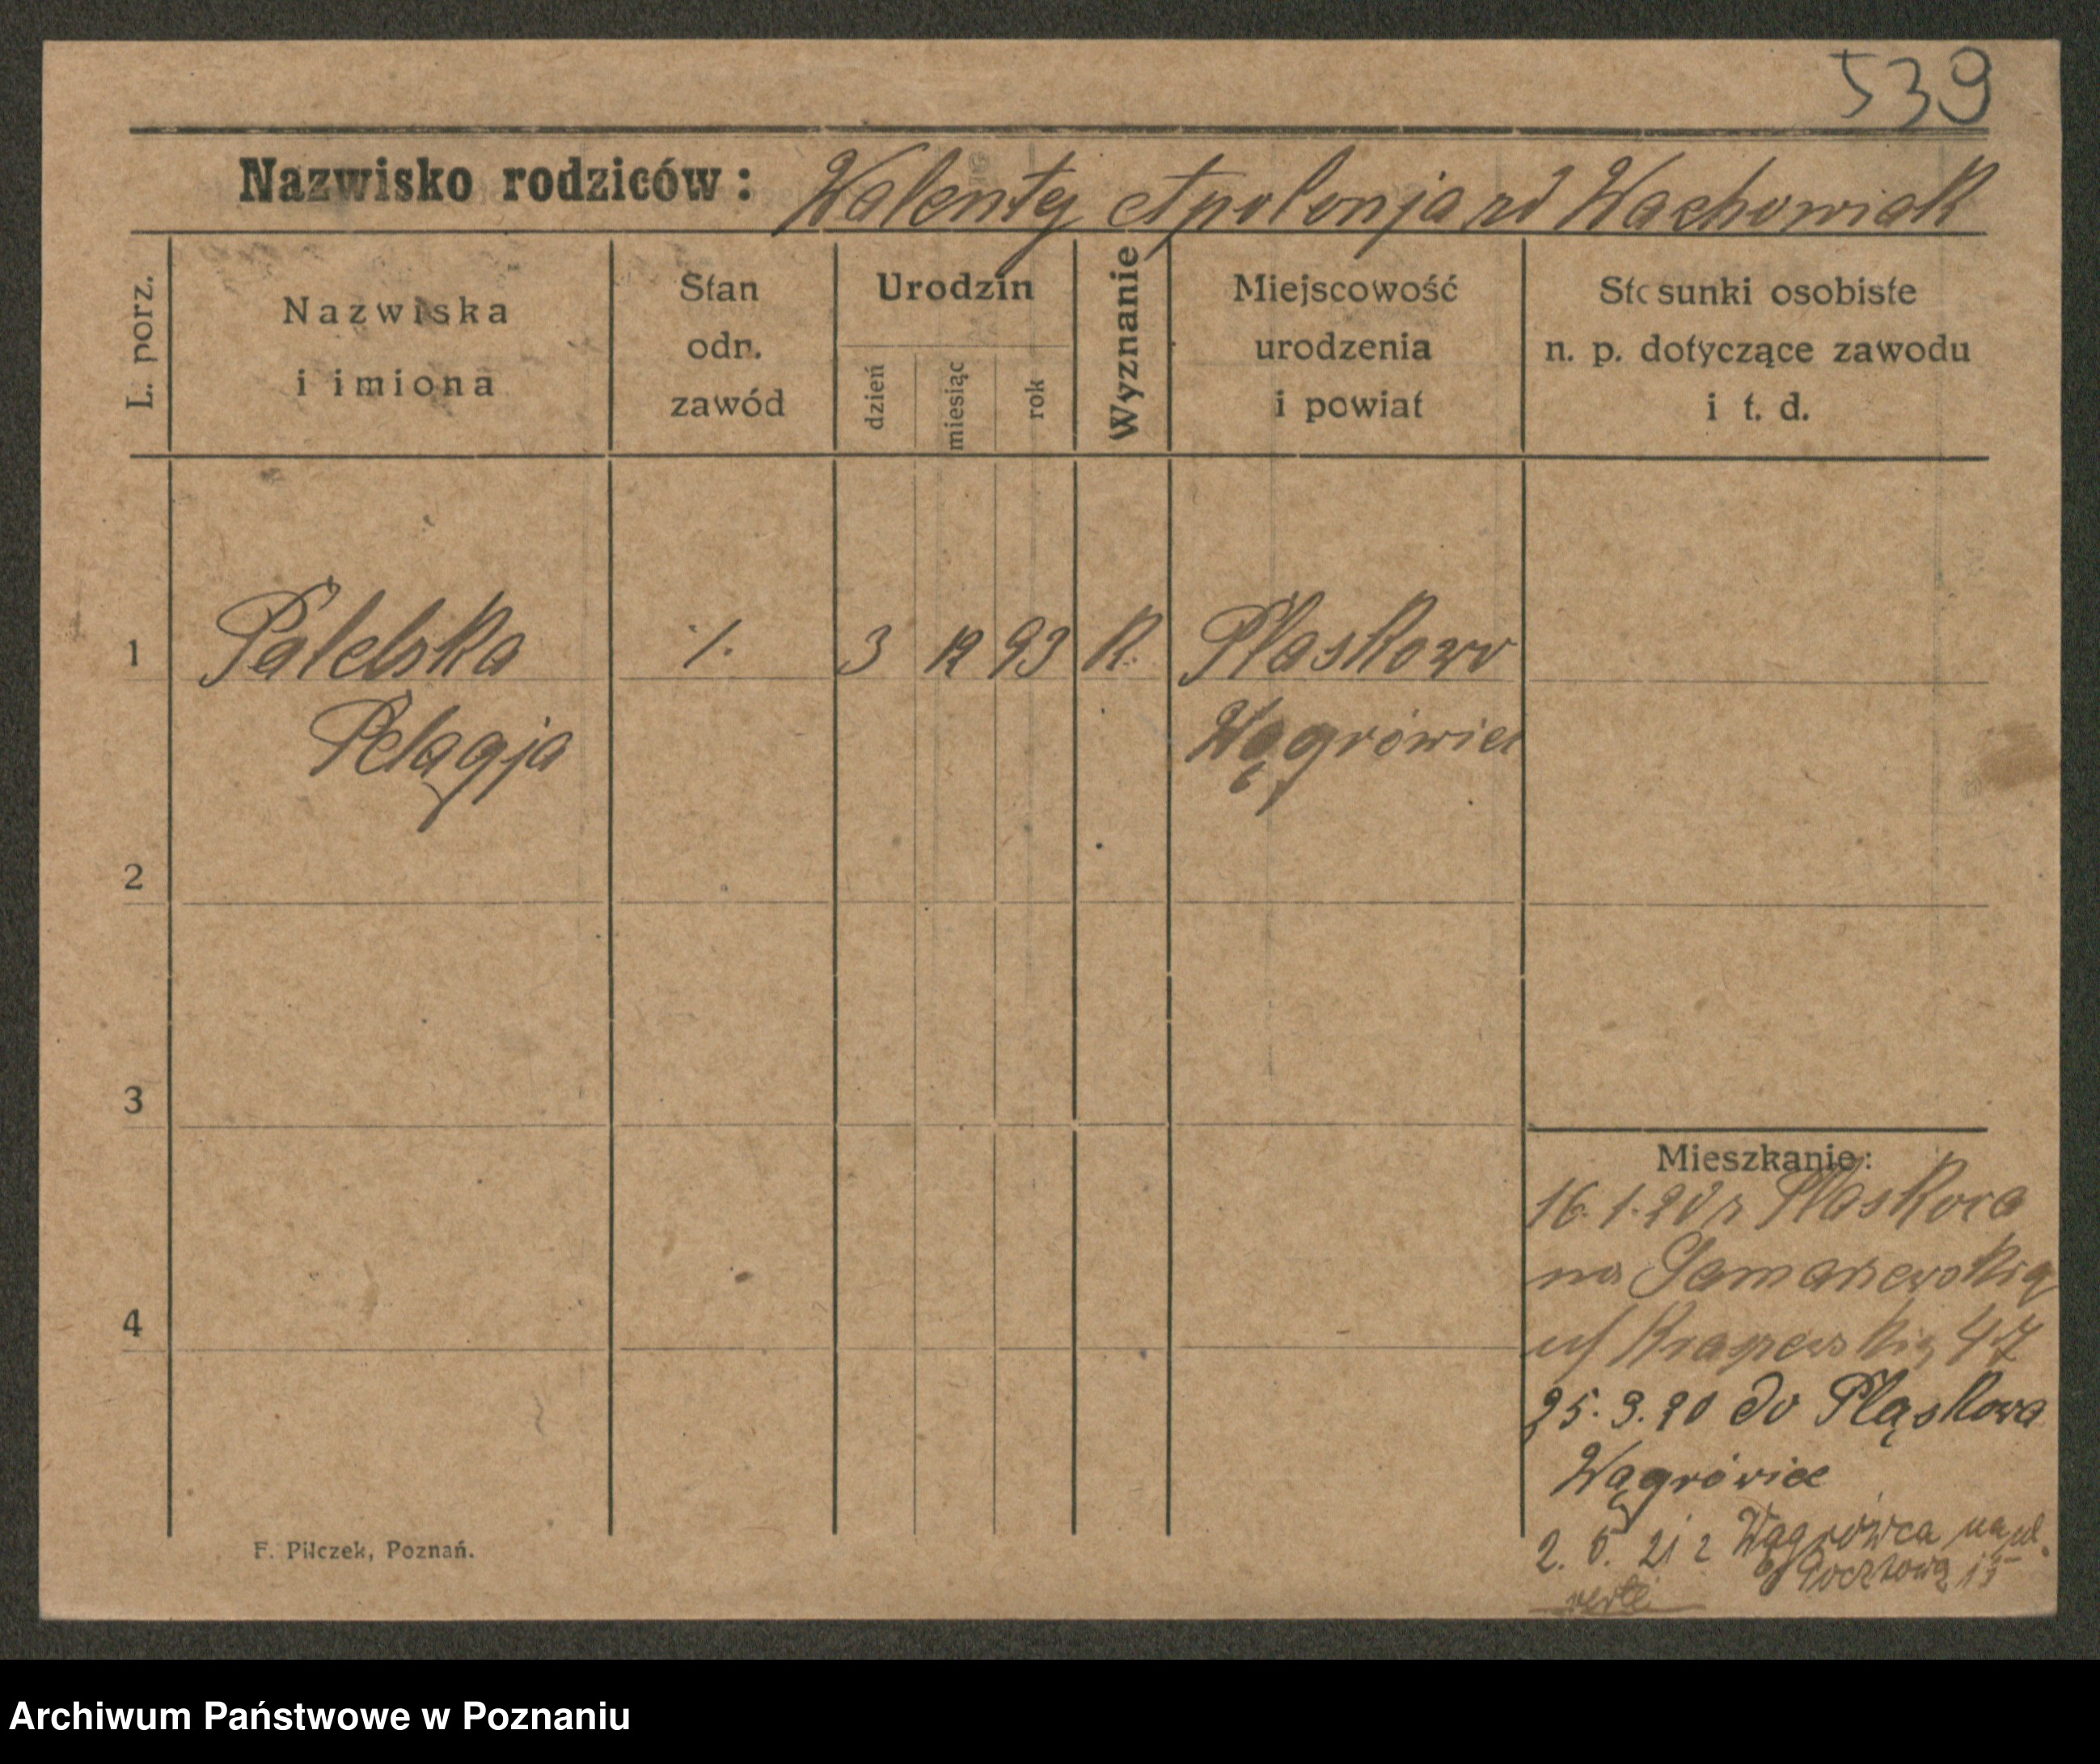 539
Nazwisko rodziców: Walenty Apolonja rd Wachowiak
L. porz.
Nazwiska
i imiona
Stan
odn.
zawód
Urodzin
dzień
miesiąc
rok
Wyznanie
Miejscowość
urodzenia
i powiat
Stosunki osobiste
n. p. dotyczące zawodu
i t. d.
1 Palelska ·/. 3 12 93 K. Płaskowo
Pelagja Wągrówiec
2
3
4
Mieszkanie:
16.1.20 z Płaskowa
na
ul 47
25.3.20 do Pląskowa
Wągrówiec
2. 5. 21 z Wągrówca na ul.
Pocztową 15
verte
F. Pilczek, Poznań.
Archiwum Państwowe w Poznaniu